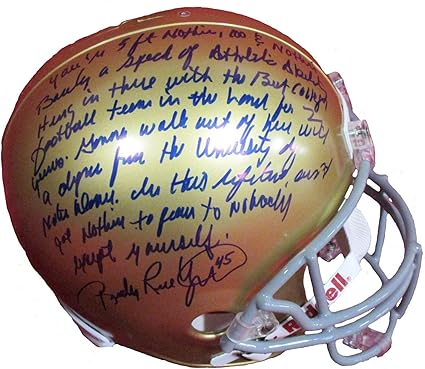 You're 5 ft Nothin, 100 & Nothin
Barely a Speck of Athletic Ability
Hung in there with the Best College
Football team in the land for 2
years. Gonna walk out of here with
a degree from the University of
Notre Dame. In this lifetime don't
got Nothin to prove to Nobody
Except yourself.
Rudy Ruettiger 45
Riddell